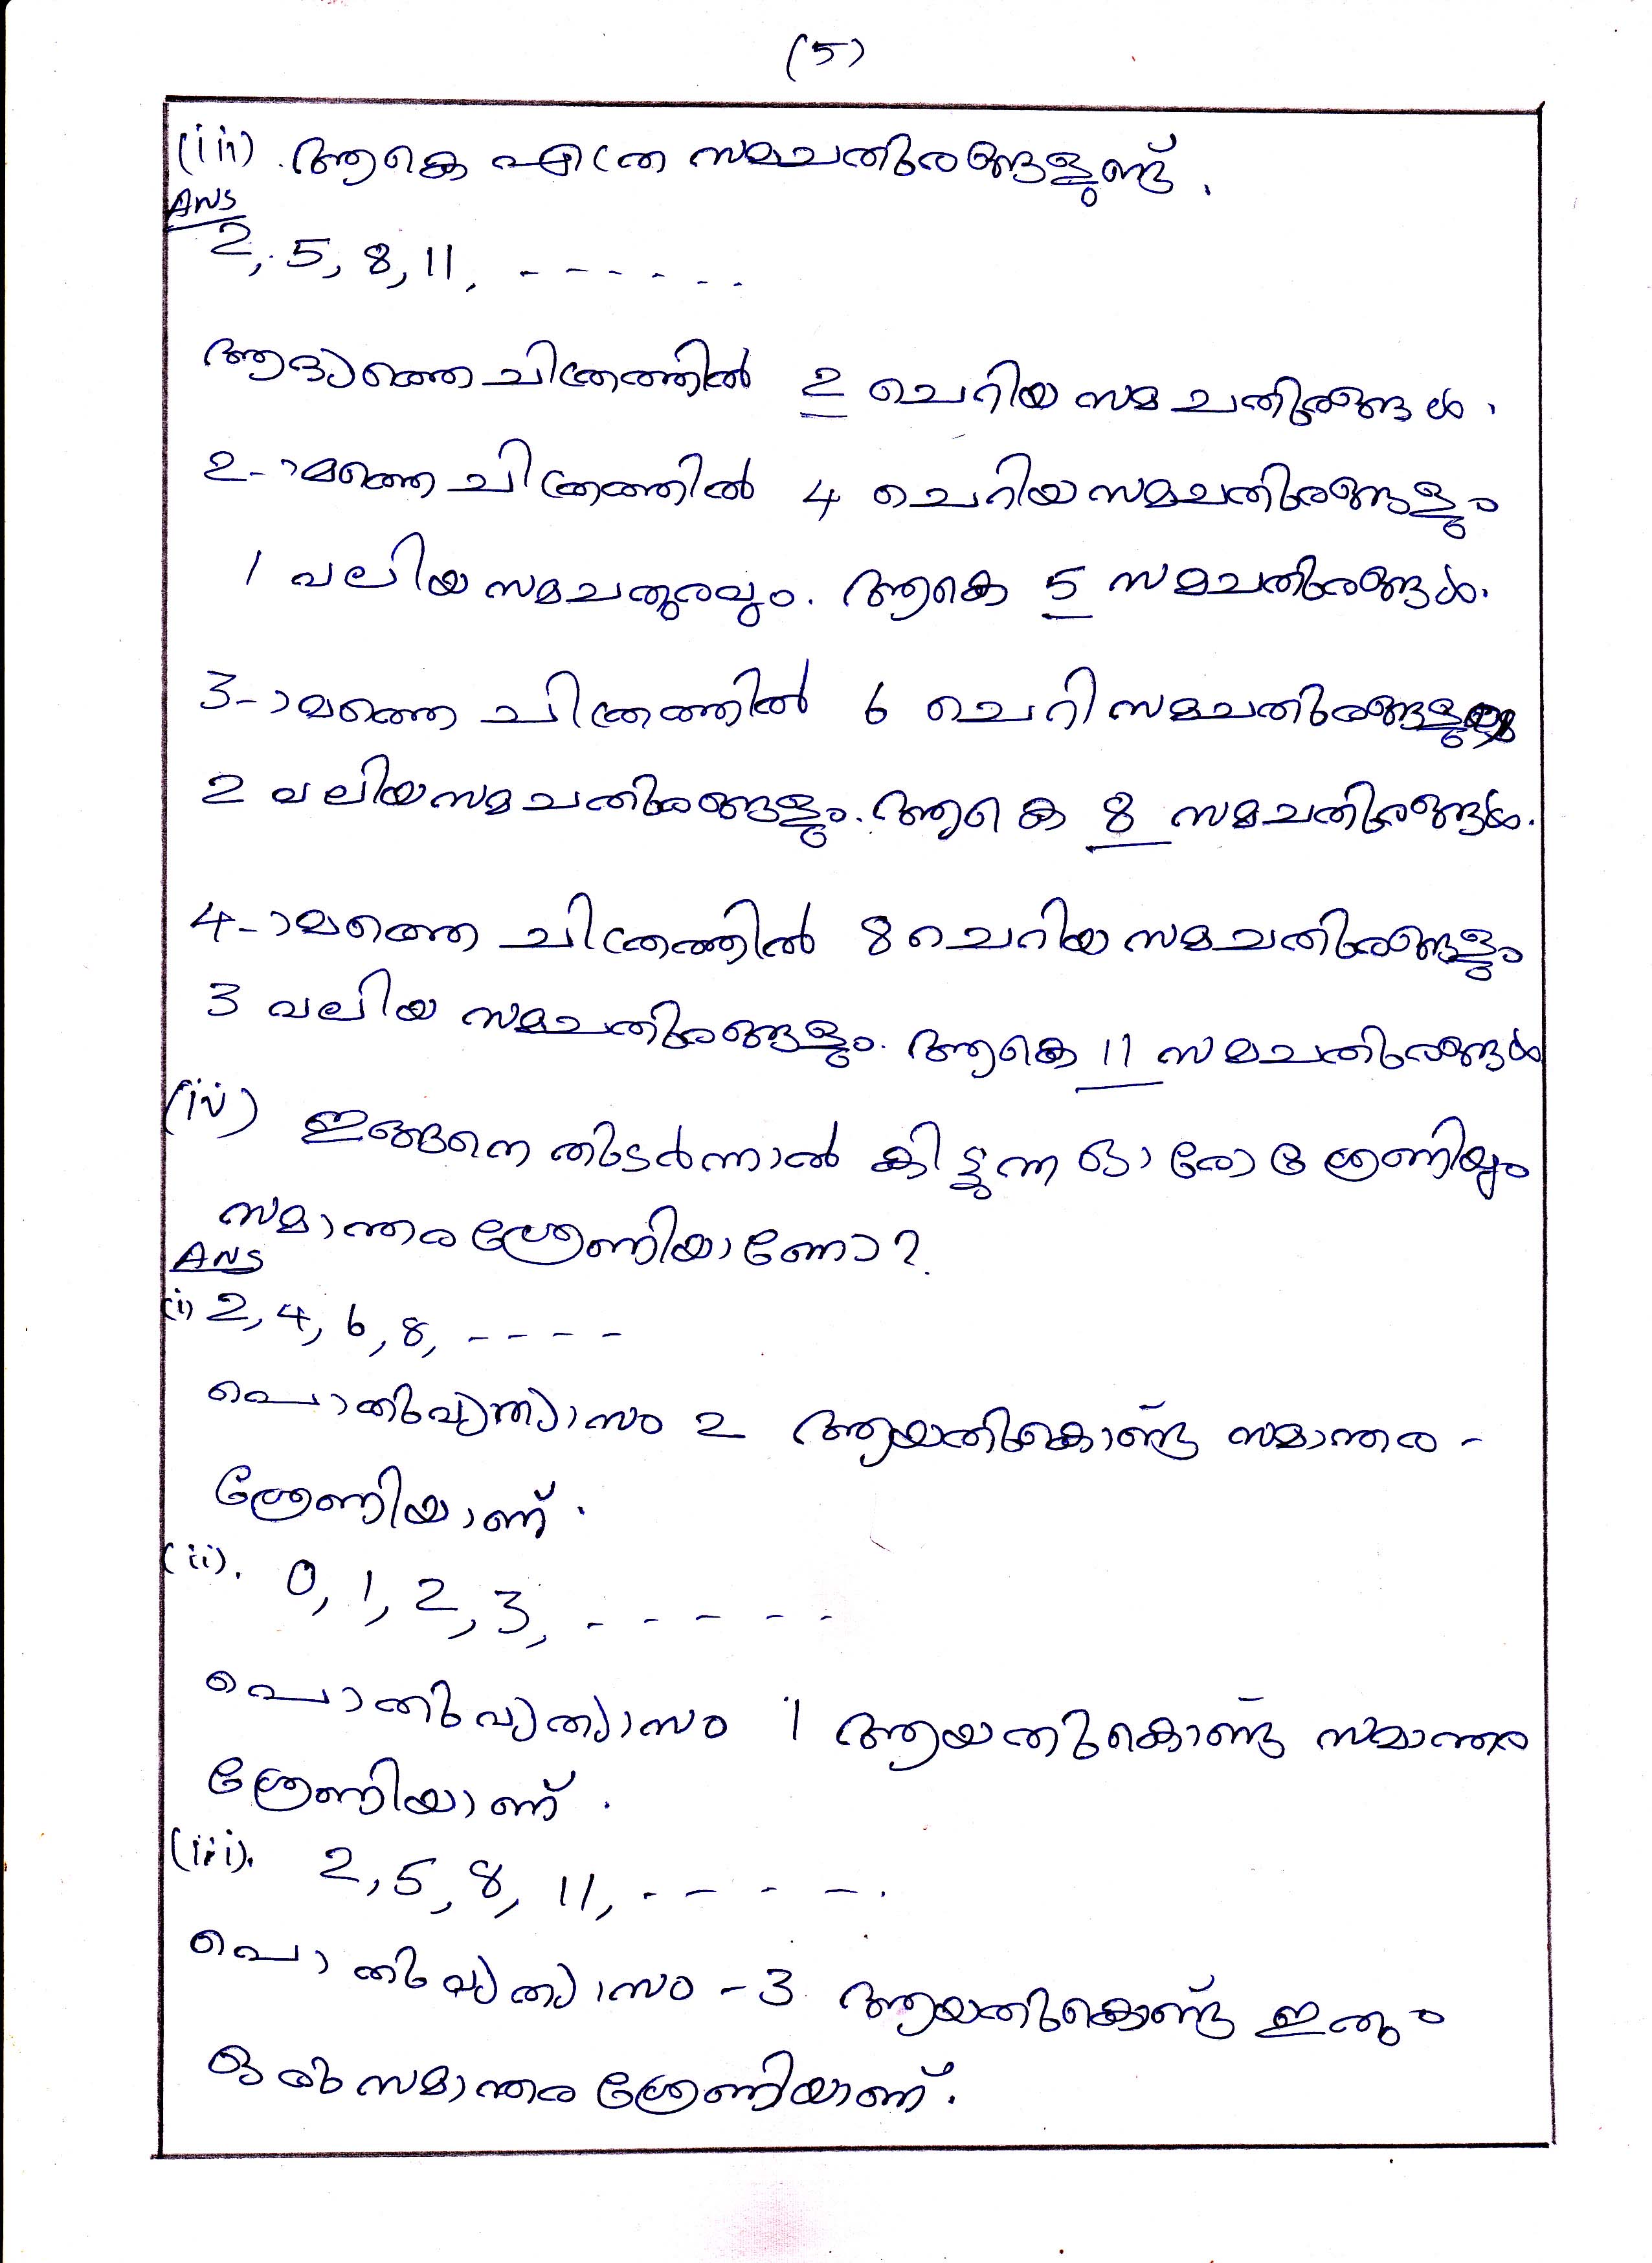 (5)
(iii) ആകെ എത്ര സമചതുരങ്ങളുണ്ട്.
Ans
2, 5, 8, 11, ------
ആദ്യത്തെ ചിത്രത്തിൽ 2 ചെറിയ സമചതുരങ്ങൾ.
2-ാമത്തെ ചിത്രത്തിൽ 4 ചെറിയ സമചതുരങ്ങളും
1 വലിയ സമചതുരവും. ആകെ 5 സമചതുരങ്ങൾ.
3-ാമത്തെ ചിത്രത്തിൽ 6 ചെറി സമചതുരങ്ങളും
2 വലിയ സമചതുരങ്ങളും. ആകെ 8 സമചതുരങ്ങൾ.
4-ാമത്തെ ചിത്രത്തിൽ 8 ചെറിയ സമചതുരങ്ങളും
3 വലിയ സമചതുരങ്ങളും. ആകെ 11 സമചതുരങ്ങൾ
(iv) ഇങ്ങനെ തുടർന്നാൽ കിട്ടുന്ന ഓരോ ശ്രേണിയും
സമാന്തര ശ്രേണിയാണോ?
Ans
(i) 2, 4, 6, 8, ----
പൊതുവ്യത്യാസം 2 ആയതുകൊണ്ട് സമാന്തര-
ശ്രേണിയാണ്.
(ii). 0, 1, 2, 3, -----
പൊതുവ്യത്യാസം 1 ആയതുകൊണ്ട് സമാന്തര
ശ്രേണിയാണ്.
(iii). 2, 5, 8, 11, ----.
പൊതുവ്യത്യാസം - 3 ആയതുകൊണ്ട് ഇതും
ഒരു സമാന്തര ശ്രേണിയാണ്.